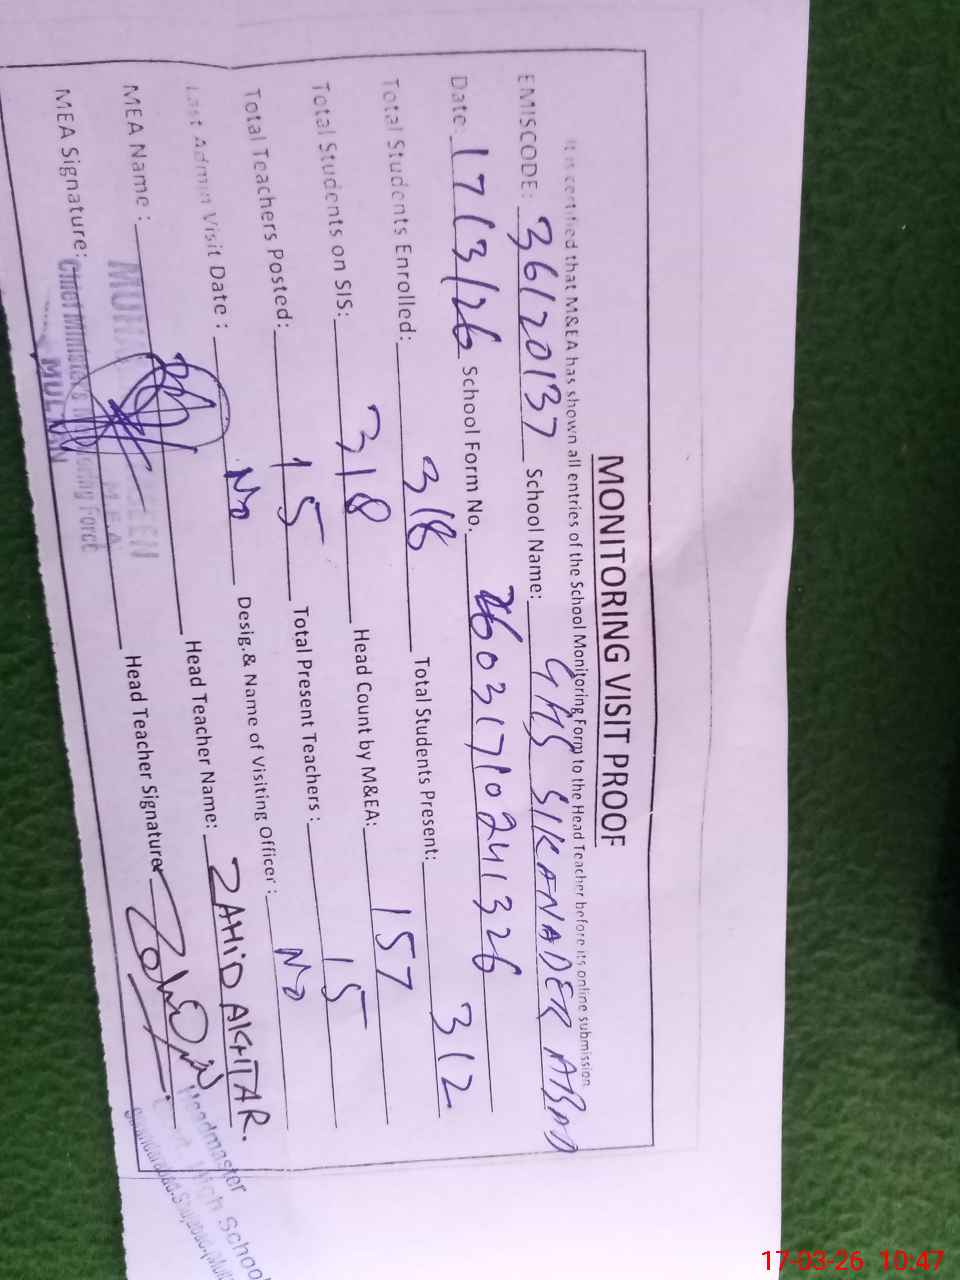 MONITORING VISIT PROOF
It is certified that M&EA has shown all entries of the School Monitoring Form to the Head Teacher before its online submission
EMISCODE: 36120137 School Name: GHS SIKANADER ABAD
Date: 17/3/26 School Form No. 26031710241326
Total Students Enrolled: 318 Total Students Present: 312
Total Students on SIS: 318 Head Count by M&EA: 157
Total Teachers Posted: 15 Total Present Teachers : 15
Last Admin Visit Date : No Desig.& Name of Visiting Officer : No
MEA Name : Head Teacher Name: ZAHID AKHTAR.
MEA Signature: Head Teacher Signature
M.E.A
Chief Minister's Monitoring Force
MULTAN
Headmaster
High School
17-03-26 10:47